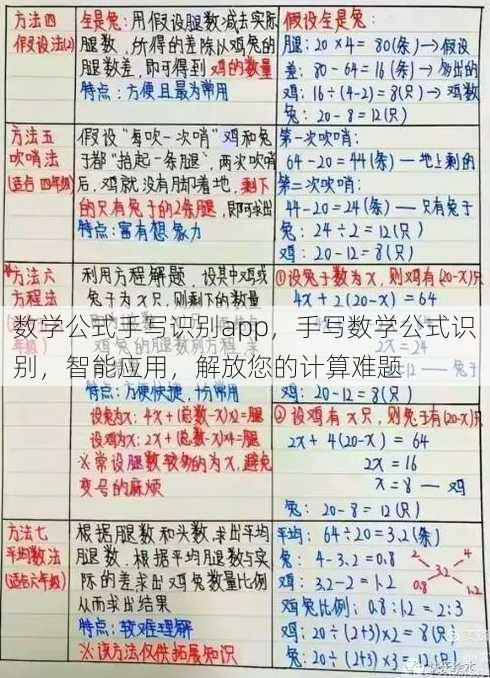 方法四
假设法(2)
全是兔：用假设腿数减去实际
腿数，所得的差除以鸡兔的
腿数差，即可得到 鸡的数量
特点：方便且最为常用
假设全是兔：
腿：20×4= 80(条)→假设
差：80-64=16(条)→多出的
鸡：16÷(4-2)=8(只)→鸡数
兔：20-8=12(只)
方法五
吹哨法
(适合 四年级)
假设“每吹一次哨”鸡和兔
于都“抬起一条腿”，两次吹哨
后，鸡就没有脚着地，剩下
的只有兔子的2条腿，即可求出
特点：富有想象力
第一次吹哨：
64-20=44(条)—地上剩的
第二次吹哨：
44-20=24(条)—只有兔子
兔：24÷2=12(只)
鸡：20-12=8(只)
方法六
方程法
年级)
利用方程解题，设其中鸡或
兔子为x只，则剩下的数量
①设兔子数为x，则鸡有(20-x)只
4x+2(20-x)=64
数学公式手写识别app，手写数学公式识
别，智能应用，解放您的计算难题
特点：方便快捷，十分常用
设兔为x：4x+(总数-x)×2=腿
设鸡为x：2x+(总数-x)×4=腿
※常设腿数较多的为x，避免
变号的麻烦
②设鸡有x只，则兔子有(20-x)只
2x+4(20-x)=64
2x=16
x=8—鸡
兔：20-8=12(只)
方法七
平均数法
(适合六年级)
根据腿数和头数，求出平均
腿数，根据平均腿数与实
际的差求出鸡兔数量比例
从而求出结果
特点：较难理解
※该方法仅供拓展知识
平均：64÷20=3.2(条)
兔：4-3.2=0.8
鸡：3.2-2=1.2
2 4
3.2
0.8 1.2
鸡兔比例：0.8:1.2=2:3
鸡：20÷(2+3)×2=8(只)
兔：20÷(2+3)×3=12(只)